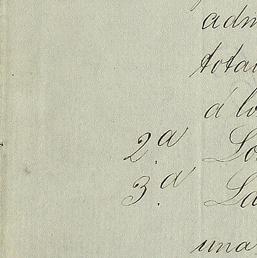 adm
tota
á lo
2.a Lo
3.a La
una